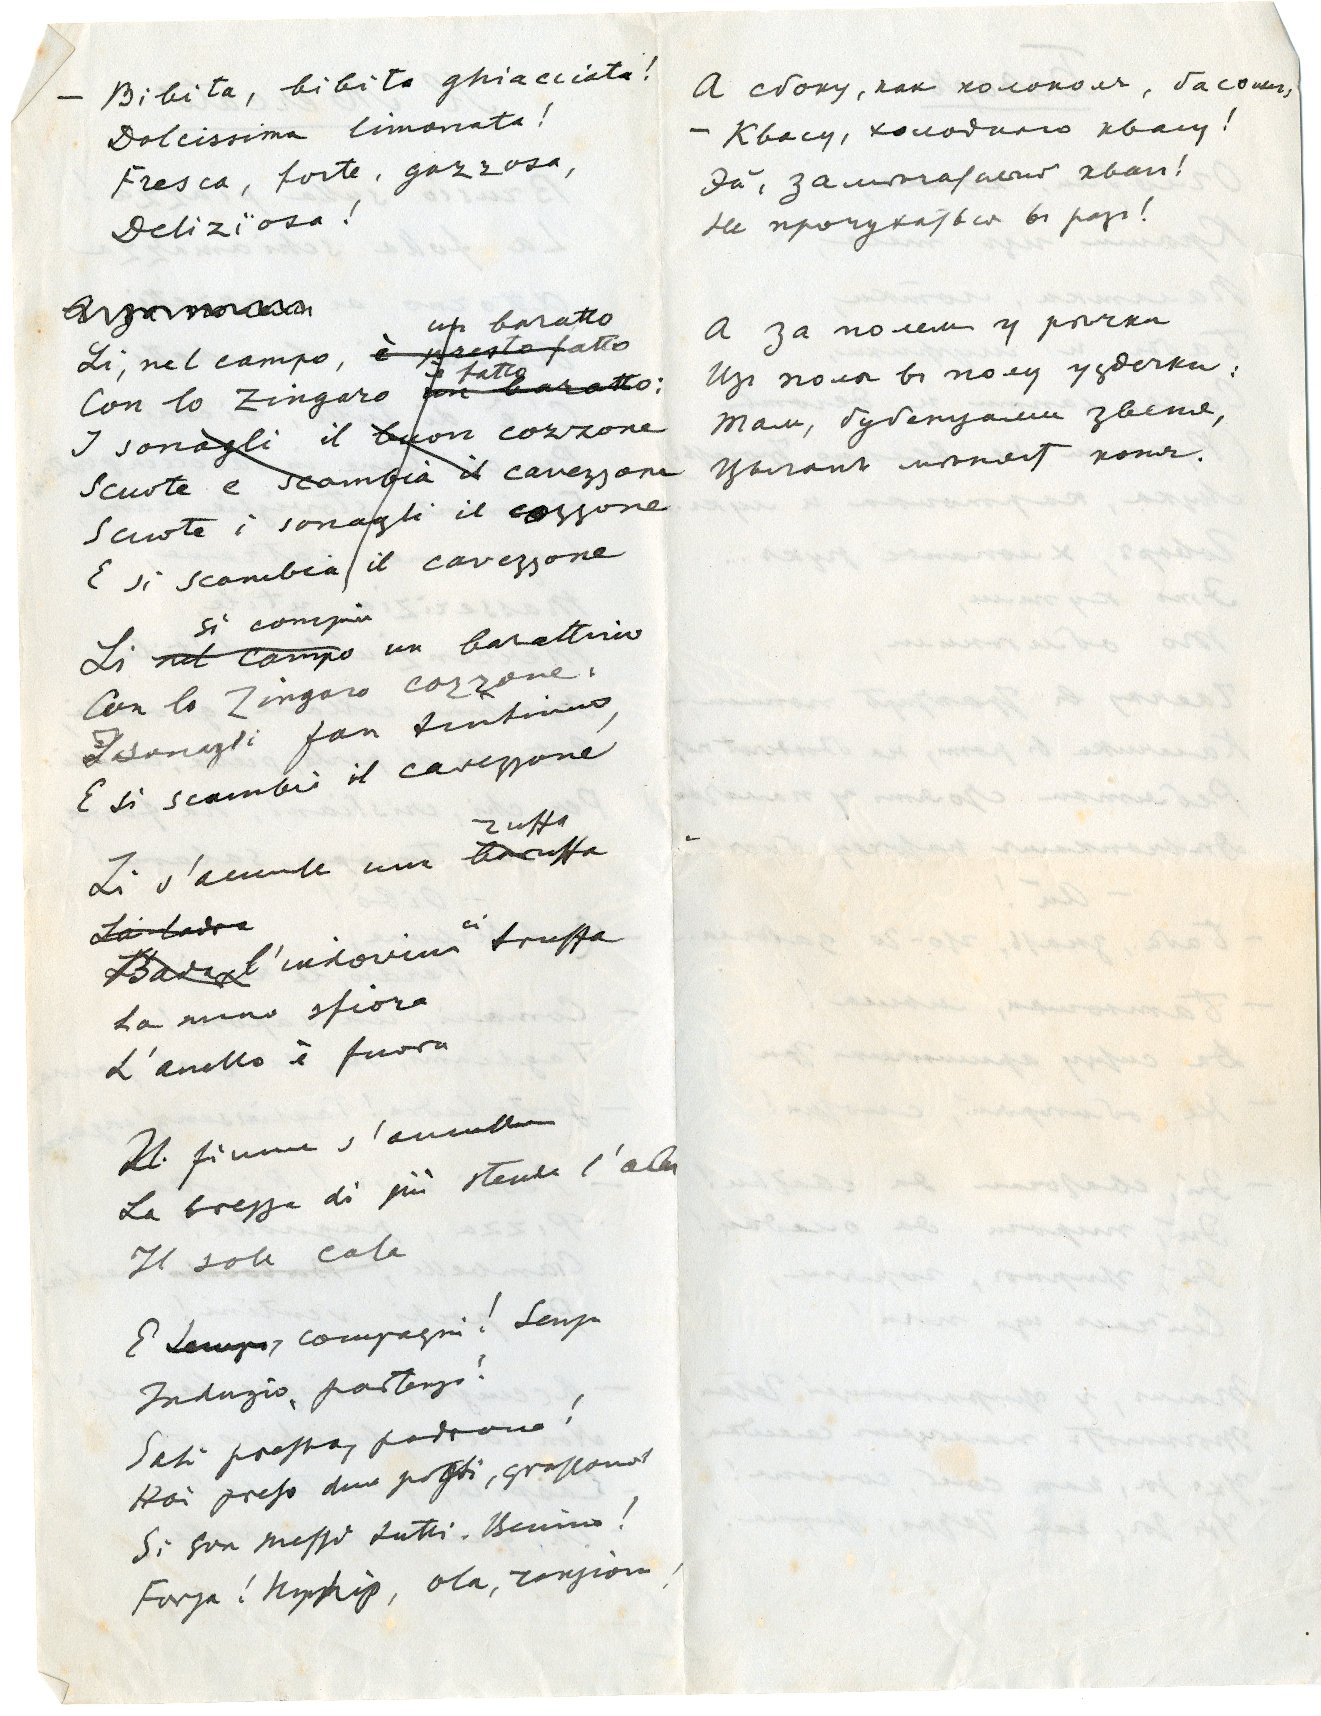 — Bibita, bibita ghiacciata!
Dolcissima limonata!
Fresca, forte, gazzosa,
Deliziosa!
un baratto
Li, nel campo, è presto fatto
è fatto
Con lo Zingaro un baratto:
I sonagli il buon cozzone
Scuote e scambia il cavezzone
Scuote i sonagli il cozzone
E si scambia il cavezzone
si compie
Li nel campo un barattino
Con lo Zingaro cozzone:
I sonagli fan tintinno,
E si scambia il cavezzone
zuffa
Li s'accende una baruffa
La ladra
Bada, l'indovina ci truffa
La mano sfiora
L'anello è fuora
Il fiume s'annella
La brezza di più stende l'ala
Il sole cala
E tempo, compagni! Senza
Indugio, partenza!
Sali pressa, padrone!
Hai preso due posti, grassone!
Si son messi tutti. Benino!
Forza! Hip hip, ola,
А сбоку, как колокола, басом:
— Квасу, холодного квасу!
Эй, замѣчательный квас!
Не прочукаться в раз!
А за полем у рѣчки
Из полы в полу уздечки:
Там, бубенцами звеня,
Цыган мѣняет коня.